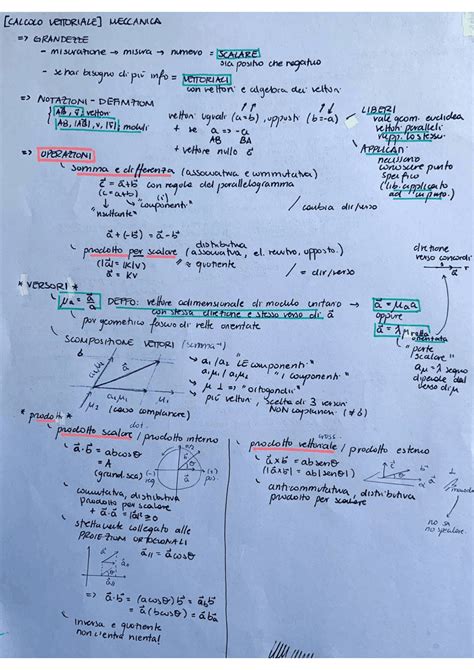 [CALCOLO VETTORIALE] MECCANICA
=> GRANDEZZE
- misurazione → misura → numero = SCALARE
sia positivo che negativo
- se hai bisogno di più info = VETTORIALI
con vettori e algebra dei vettori
=> NOTAZIONI - DEFINIZIONI
AB, v̄ vettori
AB, |AB|, v, |v̄| moduli
vettori uguali (a=b), opposti (b=-a)
+ se a => -a
AB BA
+ vettore nullo ō
LIBERI
vale geom. euclidea
vettori paralleli
rapp. lo stesso
APPLICATI
necessario
conoscere punto
specifico
(lib. applicato
ad un punto)
=> OPERAZIONI
somma e differenza (associativa e commutativa)
c̄ = ā+b̄ con regola del parallelogramma
(c = a+b)
"risultante"
"componenti"
/ cambia dir/verso
ā + (-b̄) = ā - b̄
prodotto per scalare (associativa, el. neutro, opposto)
distributiva
≈ quoziente
ā = Kv
= dir/verso
direzione
verso concordi
* VERSORI *
μa = ā/a
DEF: vettore adimensionale di modulo unitario →
con stessa direzione e stesso verso di ā
ā = μa a
oppure
ā = λ μ
retta
orientata
"parte
scalare"
aμ = λ segno
dipende dal
verso di μ
per geometrico fascio di rette orientate
SCOMPOSIZIONE VETTORI (somma⁻¹)
a₁ / a₂ "LE componenti"
a₁μ₁ / a₂μ₂ "I componenti"
μ ⊥ => "ortogonali"
più vettori, scelta di 3 versori
NON complanari
(caso complanare)
* prodotti *
dot
prodotto scalare / prodotto interno
ā·b̄ = ab cosθ
= A
(grand. sca)
commutativa, distributiva
prodotto per scalare
+ ā·ā = |ā|² ≥ 0
strettamente collegato alle
PROIEZIONI ORTOGONALI
a∥ = a cosθ
=> ā·b̄ = (a cosθ) b
= a (b cosθ)
inversa e quoziente
non c'entra niente!
cross
prodotto vettoriale / prodotto esterno
ā×b̄ = ab senθ
(|ā×b̄| = ab|senθ|)
anticommutativa, distributiva
prodotto per scalare